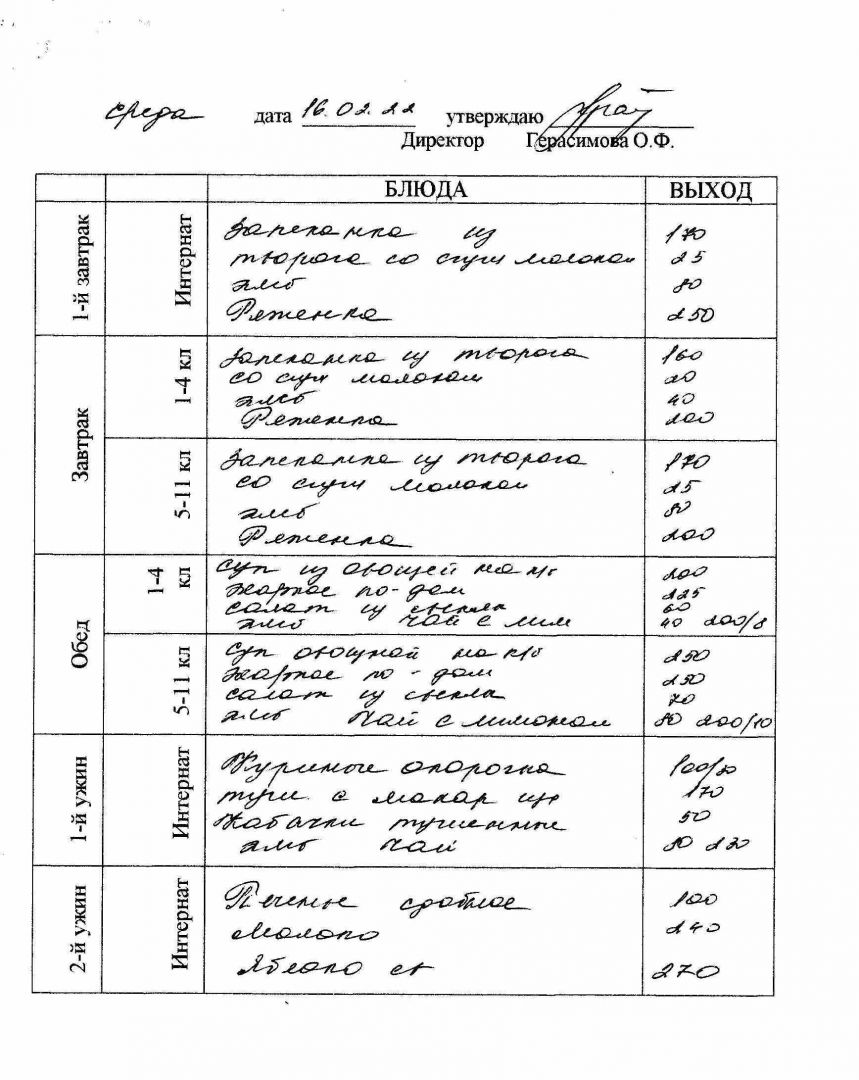 среда дата 16.02.22 утверждаю
Директор Герасимова О.Ф.
БЛЮДА ВЫХОД
1-й завтрак Интернат
Запеканка из 170
творога со сгущ молоком 25
хлеб 80
Ряженка 250
Завтрак
1-4 кл
Запеканка из творога 160
со сгущ молоком 20
хлеб 40
Ряженка 200
5-11 кл
Запеканка из творога 170
со сгущ молоком 25
хлеб 80
Ряженка 200
Обед
1-4 кл
Суп из овощей на к/б 200
Жаркое по-дом 225
салат из свеклы 60
хлеб чай с лим 40 200/8
5-11 кл
Суп овощной на к/б 250
Жаркое по-дом 250
салат из свеклы 70
хлеб чай с лимоном 80 200/10
1-й ужин Интернат
Куриные окорочка 100/50
туш. с макар изд 170
Кабачки тушенные 50
хлеб чай 80 230
2-й ужин Интернат
Печенье сдобное 100
Молоко 240
Яблоко св 270